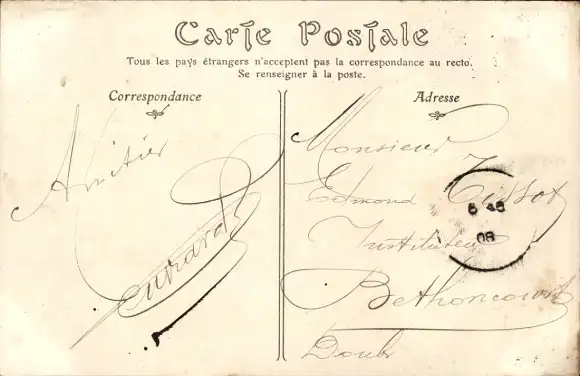 Carte Postale
Tous les pays étrangers n'acceptent pas la correspondance au recto.
Se renseigner à la poste.
Correspondance
Amitiés
Adresse
Monsieur
Edmond Tissot
Instituteur
Bethoncourt
Doubs
5 45
08